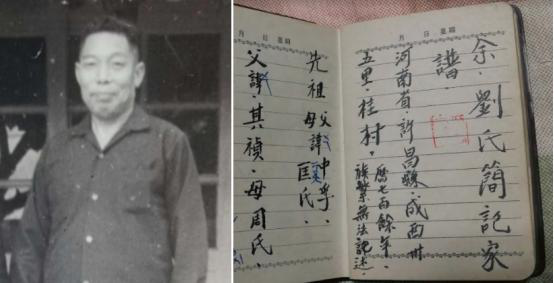 月 日 星期
余·劉氏簡記家
譜·
河南省許昌縣·成西卅
五里·桂村·
曆七百餘年·
族繁無法記述·
月 日 星期
先祖
父諱中孚·
母諱匡氏·
父諱·其禎·母周氏·